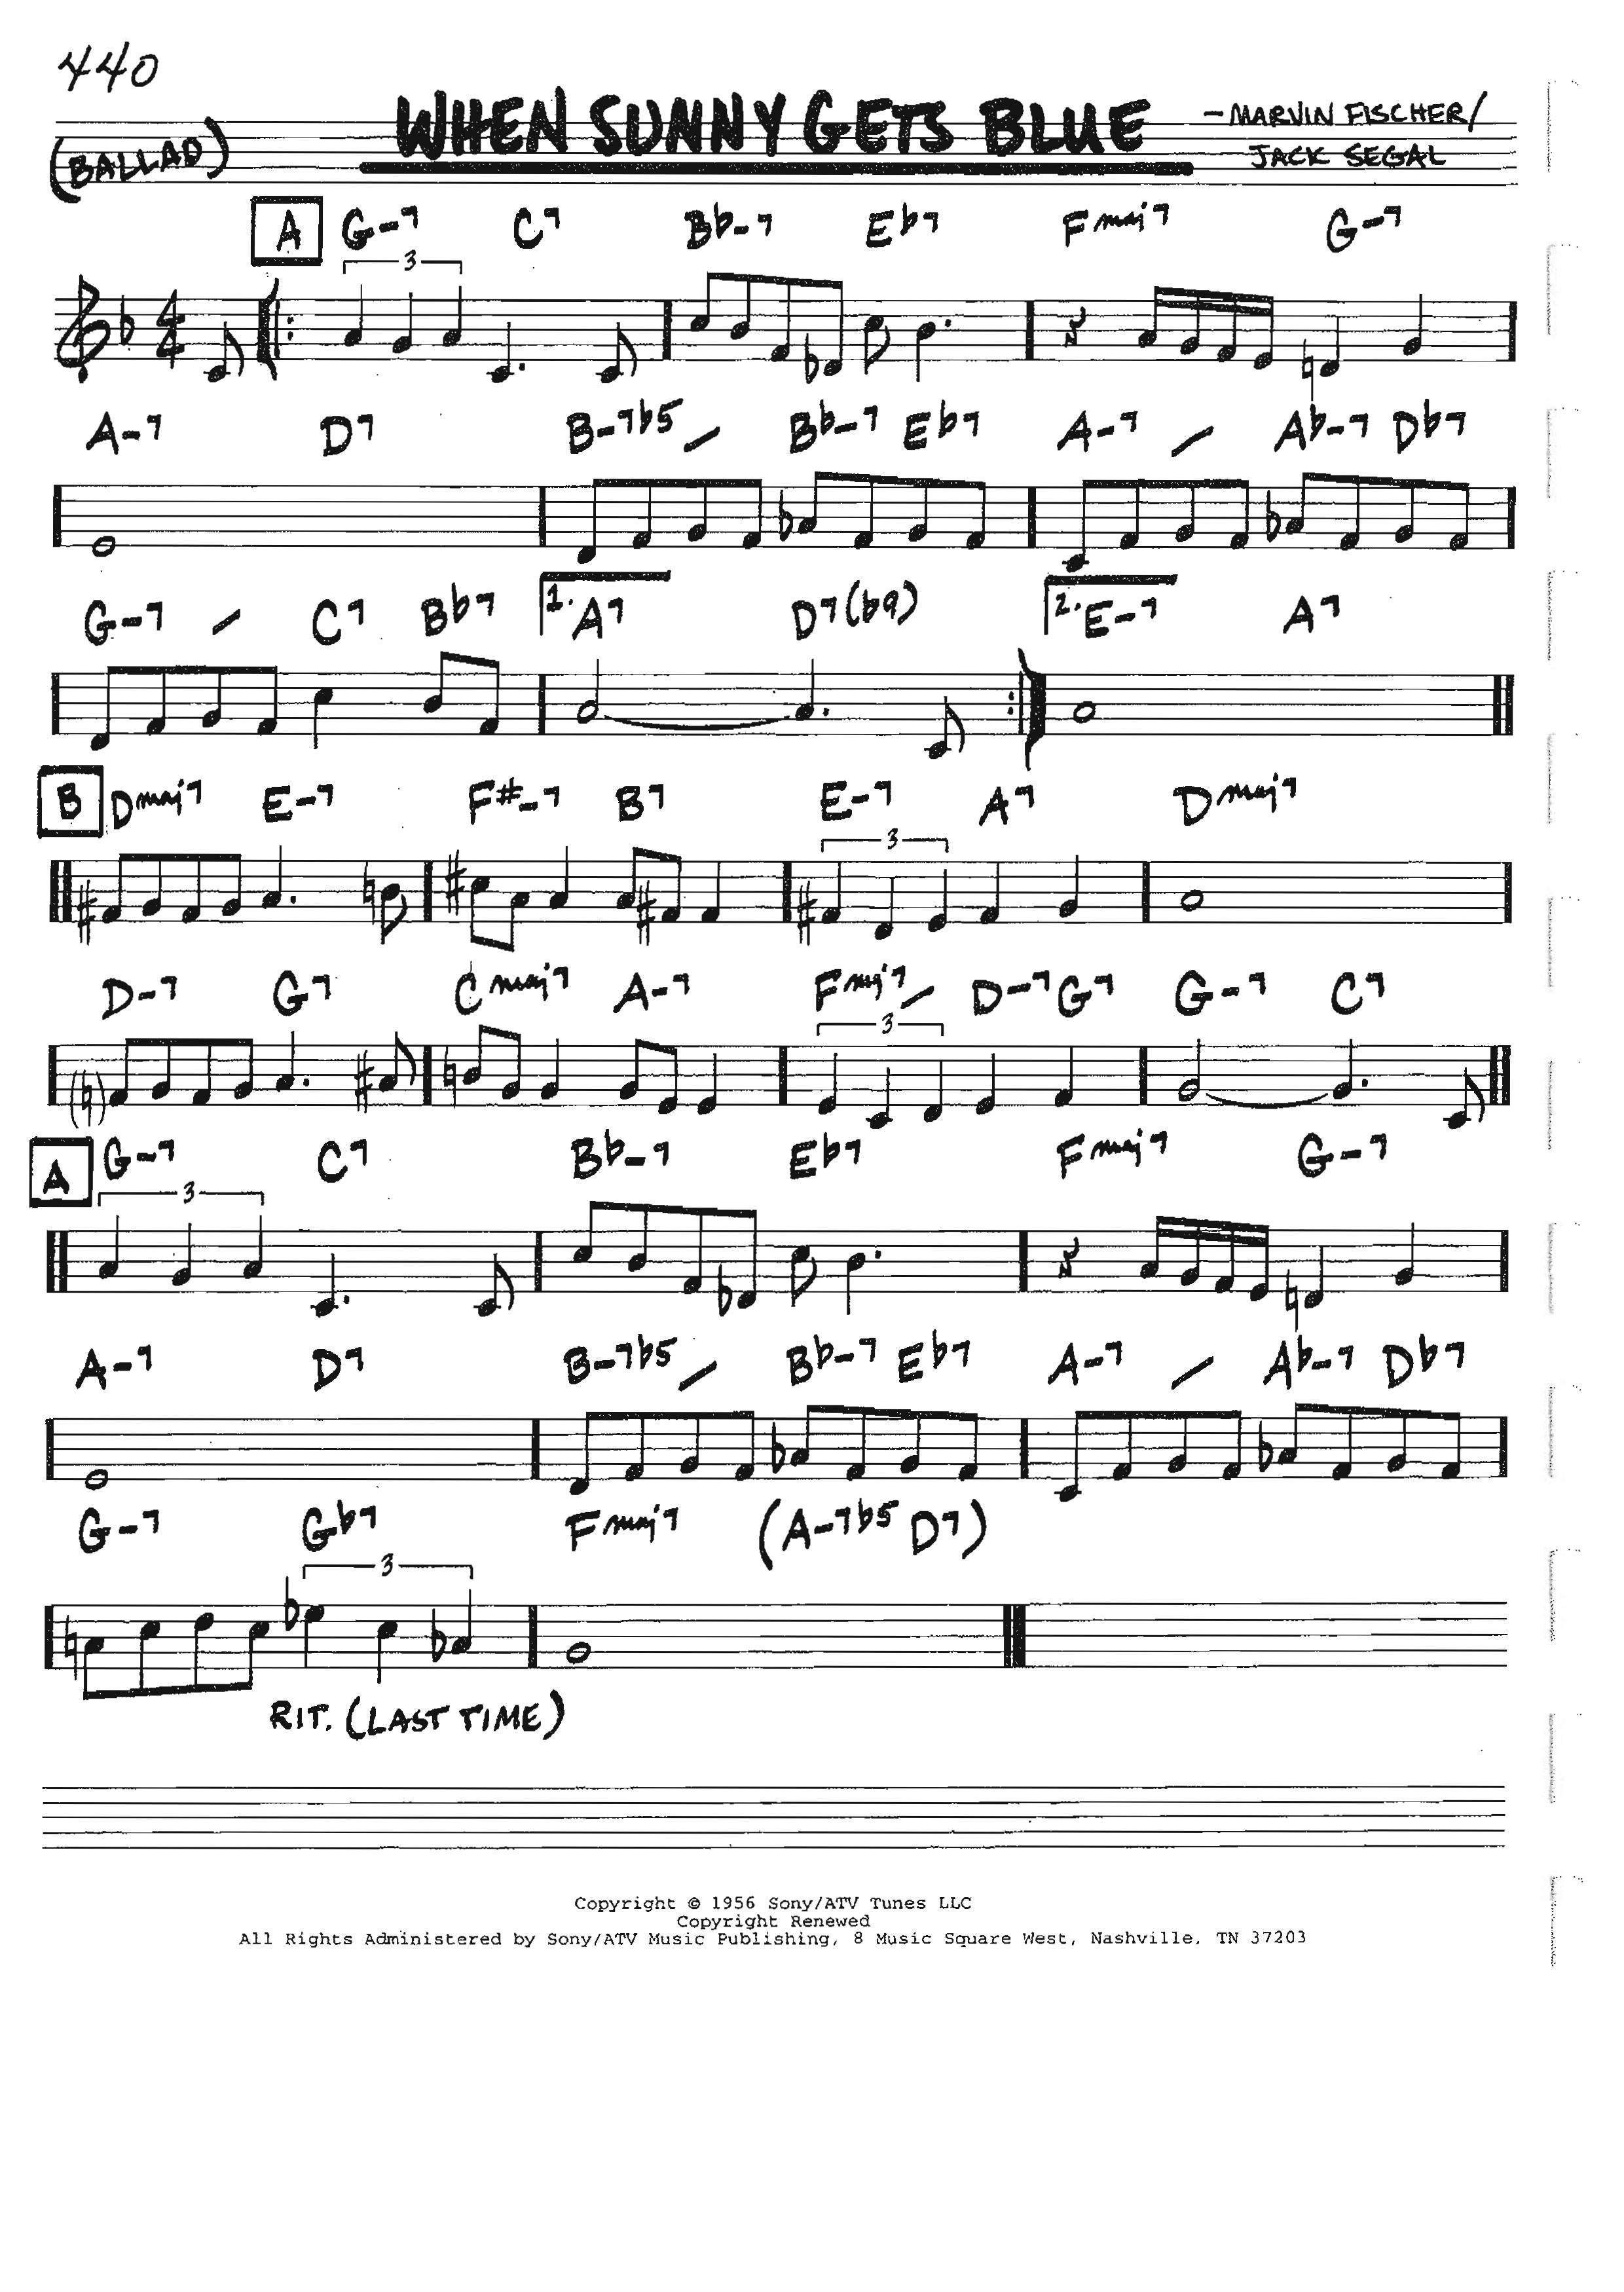 440
WHEN SUNNY GETS BLUE
-MARVIN FISCHER/
JACK SEGAL
(BALLAD)
A G-7 C7 Bb-7 Eb7 Fmaj7 G-7
3
4
4
A-7 D7 B-7b5 / Bb-7 Eb7 A-7 / Ab-7 Db7
G-7 / C7 Bb7 1. A7 D7(b9) 2. E-7 A7
B Dmaj7 E-7 F#-7 B7 E-7 A7 Dmaj7
3
D-7 G7 Cmaj7 A-7 Fmaj7 / D-7 G7 G-7 C7
3
A G-7 C7 Bb-7 Eb7 Fmaj7 G-7
3
A-7 D7 B-7b5 / Bb-7 Eb7 A-7 / Ab-7 Db7
G-7 Gb7 Fmaj7 (A-7b5 D7)
3
RIT. (LAST TIME)
Copyright © 1956 Sony/ATV Tunes LLC
Copyright Renewed
All Rights Administered by Sony/ATV Music Publishing, 8 Music Square West, Nashville, TN 37203